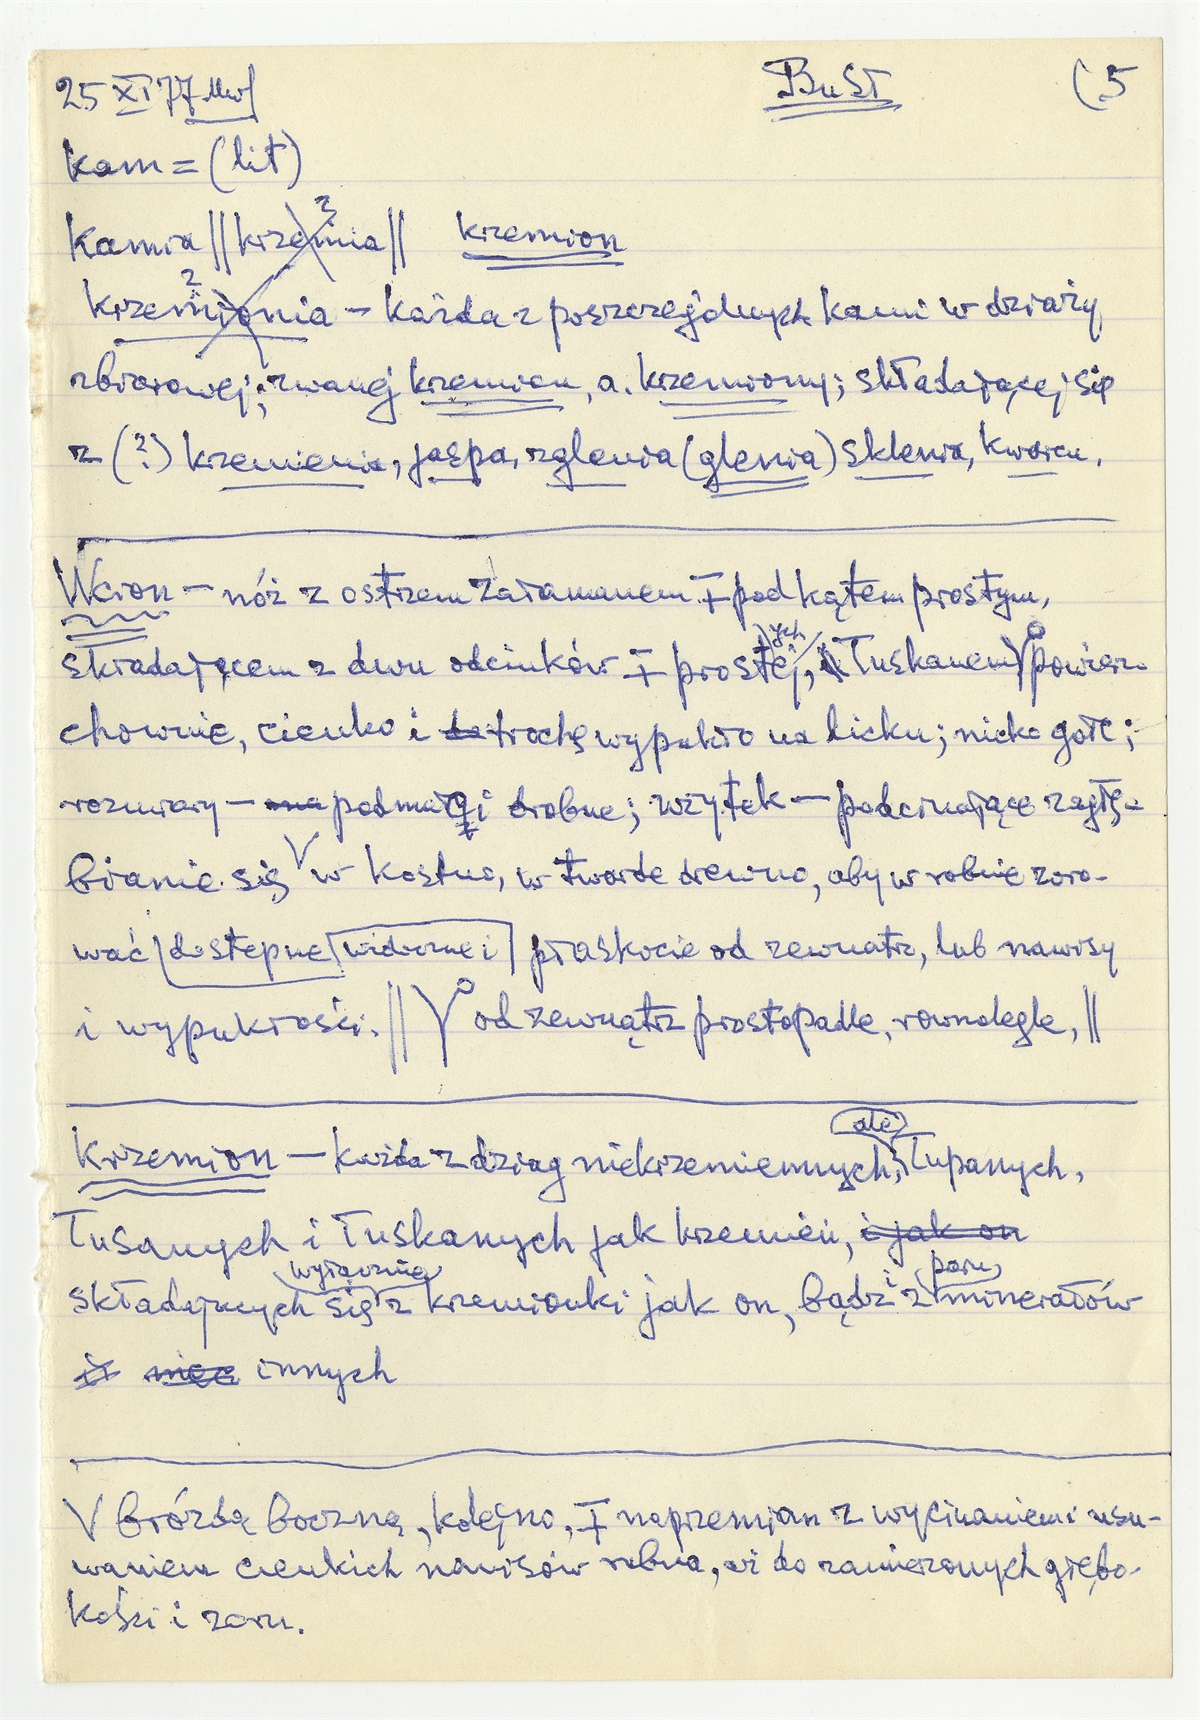 25 XI 77 BuSt (5
kam = (lit)
Kamia || krzemia || krzemion
krzemionia – każda z poszczególnych kami w dziaży
zbiorowej; zwanej krzemion, a. krzemiony; składającej się
z (?) krzemienia, jaspa, zglenia (glenia) sklenia, kwarcu.
Wcion – nóż z ostrzem załamanem ∓ pod kątem prostym,
składającem z dwu odcinków ∓ prostych, łuskanem powierz-
chownie, cienko i trochę wypukło na licku; nicko gołe;
rozmiary – podmałe i drobne; wzytek – podcinające zagłę-
bianie się w kostno, w twarde drewno, aby w robnie zoro-
wać dostępne widoczne i płaskocie od zewnatrz, lub nawisy
i wypukłości. || od zewnątrz prostopadle, rownolegle, ||
Krzemion – każda z dziag niekrzemiennych, ale łupanych,
łusanych i łuskanych jak krzemień, i jak on
składających się wyłącznie z krzemionki jak on, bądź i z paru minerałów
innych
V bróżdą boczną, kolejno, ∓ naprzemian z wycinaniem i usu-
waniem cienkich nawisów robna, aż do zamierzonych głębo-
kości i zoru.